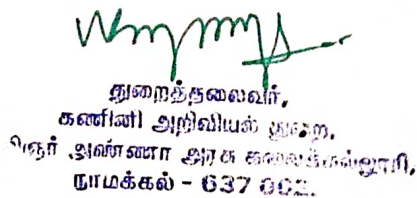 துறைத்தலைவர்,
கணினி அறிவியல் துறை,
அண்ணா அரசு கலைக்கல்லூரி,
நாமக்கல் - 637 002.